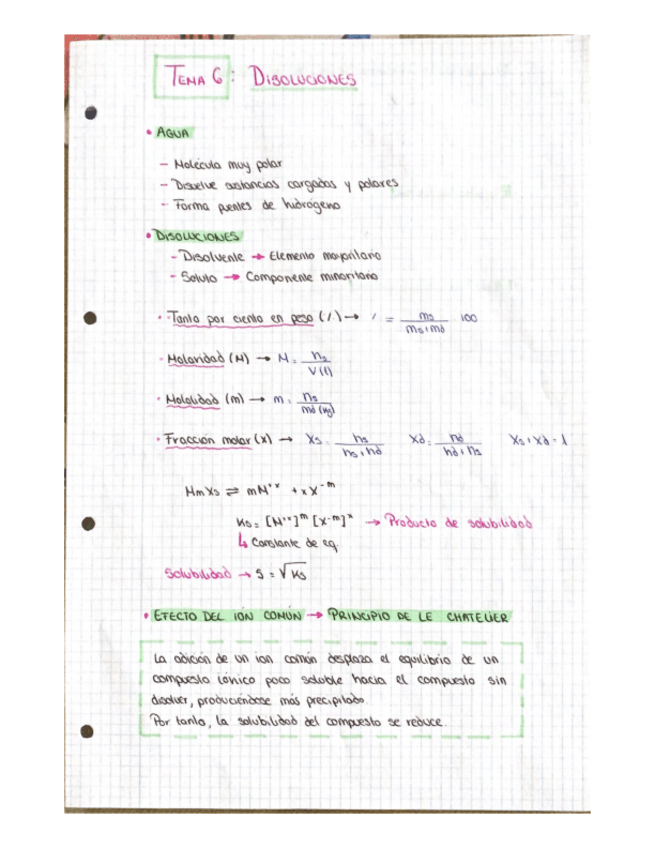 TEMA 6: DISOLUCIONES
• AGUA
- Molécula muy polar
- Disuelve sustancias cargadas y polares
- Forma puentes de hidrógeno
• DISOLUCIONES
- Disolvente → Elemento mayoritario
- Soluto → Componente minoritario
• Tanto por ciento en peso (/) → / = ms / ms+md 100
• Molaridad (M) → M = ns / V(l)
• Molalidad (m) → m = ns / md (kg)
• Fracción molar (x) → Xs = ns / ns+nd Xd = nd / nd+ns Xs+Xd=1
MmXs ⇌ mM⁺ˣ + xX⁻ᵐ
Ks = [M⁺ˣ]ᵐ [X⁻ᵐ]ˣ → Producto de solubilidad
↳ Constante de eq.
Solubilidad → S = √Ks
• EFECTO DEL IÓN COMÚN → PRINCIPIO DE LE CHATELIER
La adición de un ion común desplaza el equilibrio de un
compuesto iónico poco soluble hacia el compuesto sin
disolver, produciéndose más precipitado.
Por tanto, la solubilidad del compuesto se reduce.